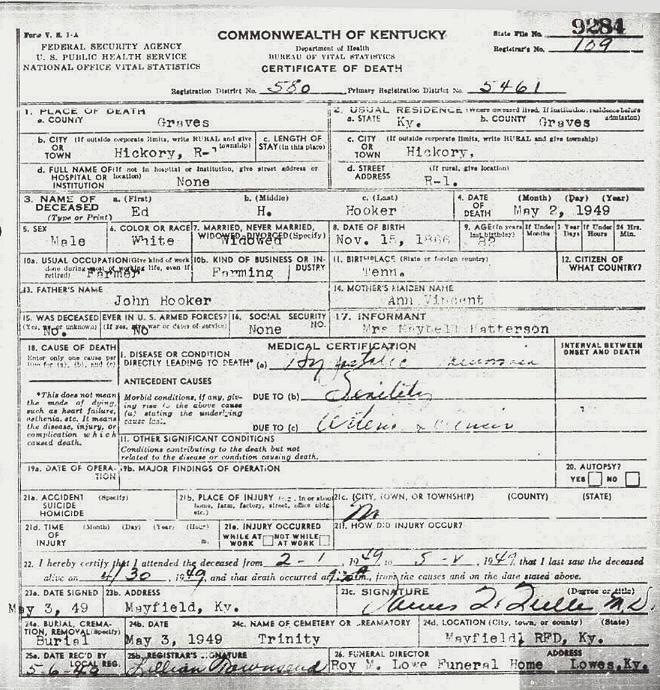 Form V. S. 1-A
FEDERAL SECURITY AGENCY
U. S. PUBLIC HEALTH SERVICE
NATIONAL OFFICE VITAL STATISTICS
COMMONWEALTH OF KENTUCKY
Department of Health
BUREAU OF VITAL STATISTICS
CERTIFICATE OF DEATH
State File No. 9284
Registrar's No. 109
Registration District No. 580 Primary Registration District No. 5461
1. PLACE OF DEATH
a. COUNTY Graves
2. USUAL RESIDENCE (Where deceased lived. If institution: residence before admission)
a. STATE Ky. b. COUNTY Graves
b. CITY OR TOWN (If outside corporate limits, write RURAL and give township) Hickory, R-1
c. LENGTH OF STAY (in this place)
c. CITY OR TOWN (If outside corporate limits, write RURAL and give township) Hickory,
d. FULL NAME OF HOSPITAL OR INSTITUTION (If not in hospital or institution, give street address or location) None
d. STREET ADDRESS (If rural, give location) R-1.
3. NAME OF DECEASED (Type or Print)
a. (First) Ed b. (Middle) H. c. (Last) Hooker
4. DATE OF DEATH (Month) (Day) (Year) May 2, 1949
5. SEX Male
6. COLOR OR RACE White
7. MARRIED, NEVER MARRIED, WIDOWED, DIVORCED (Specify) Widowed
8. DATE OF BIRTH Nov. 15, 1866
9. AGE (In years last birthday) 82 If Under 1 Year Months Days If Under 24 Hrs. Hours Min.
10a. USUAL OCCUPATION (Give kind of work done during most of working life, even if retired) Farmer
10b. KIND OF BUSINESS OR INDUSTRY Farming
11. BIRTHPLACE (State or foreign country) Tenn.
12. CITIZEN OF WHAT COUNTRY?
13. FATHER'S NAME John Hooker
14. MOTHER'S MAIDEN NAME Ann Vincent
15. WAS DECEASED EVER IN U. S. ARMED FORCES? (Yes, no or unknown) (If yes, give war or dates of service) No.
16. SOCIAL SECURITY NO. None
17. INFORMANT Mrs Maybell Patterson
18. CAUSE OF DEATH
Enter only one cause per line for (a), (b), and (c)
*This does not mean the mode of dying, such as heart failure, asthenia, etc. It means the disease, injury, or complication which caused death.
MEDICAL CERTIFICATION
INTERVAL BETWEEN ONSET AND DEATH
I. DISEASE OR CONDITION DIRECTLY LEADING TO DEATH* (a)
ANTECEDENT CAUSES
Morbid conditions, if any, giving rise to the above cause (a) stating the underlying cause last.
DUE TO (b) Senility
DUE TO (c)
II. OTHER SIGNIFICANT CONDITIONS
Conditions contributing to the death but not related to the disease or condition causing death.
19a. DATE OF OPERATION
19b. MAJOR FINDINGS OF OPERATION
20. AUTOPSY? YES NO
21a. ACCIDENT SUICIDE HOMICIDE (Specify)
21b. PLACE OF INJURY (e.g., in or about home, farm, factory, street, office bldg., etc.)
21c. (CITY, TOWN, OR TOWNSHIP) (COUNTY) (STATE)
21d. TIME OF INJURY (Month) (Day) (Year) (Hour) m.
21e. INJURY OCCURRED WHILE AT WORK NOT WHILE AT WORK
21f. HOW DID INJURY OCCUR?
22. I hereby certify that I attended the deceased from 2-1, 1949, to 5-2, 1949, that I last saw the deceased
alive on 4/30, 1949, and that death occurred at m., from the causes and on the date stated above.
23a. DATE SIGNED May 3, 49
23b. ADDRESS Mayfield, Ky.
23c. SIGNATURE (Degree or title) M.D.
24a. BURIAL, CREMATION, REMOVAL (Specify) Burial
24b. DATE May 3, 1949
24c. NAME OF CEMETERY OR CREAMATORY Trinity
24d. LOCATION (City, town, or county) (State) Mayfield, RFD, Ky.
25a. DATE REC'D BY LOCAL REG. 5-6-49
25b. REGISTRAR'S SIGNATURE Lillian Townsend
26. FUNERAL DIRECTOR ADDRESS Roy M. Lowe Funeral Home Lowes, Ky.